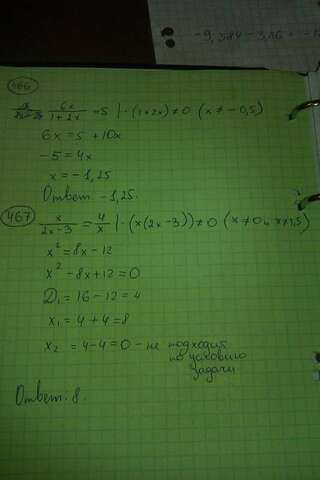 -9,384 - 3,16 = -1
466
6x/(1+2x) = 5 | · (1+2x) ≠ 0 (x ≠ -0,5)
6x = 5 + 10x
-5 = 4x
x = -1,25
Ответ -1,25.
467
x/(2x-3) = 4/x | · (x(2x-3)) ≠ 0 (x ≠ 0 и x ≠ 1,5)
x² = 8x - 12
x² - 8x + 12 = 0
D₁ = 16 - 12 = 4
x₁ = 4 + 4 = 8
x₂ = 4 - 4 = 0 - не подходит
по условию
задачи
Ответ. 8.